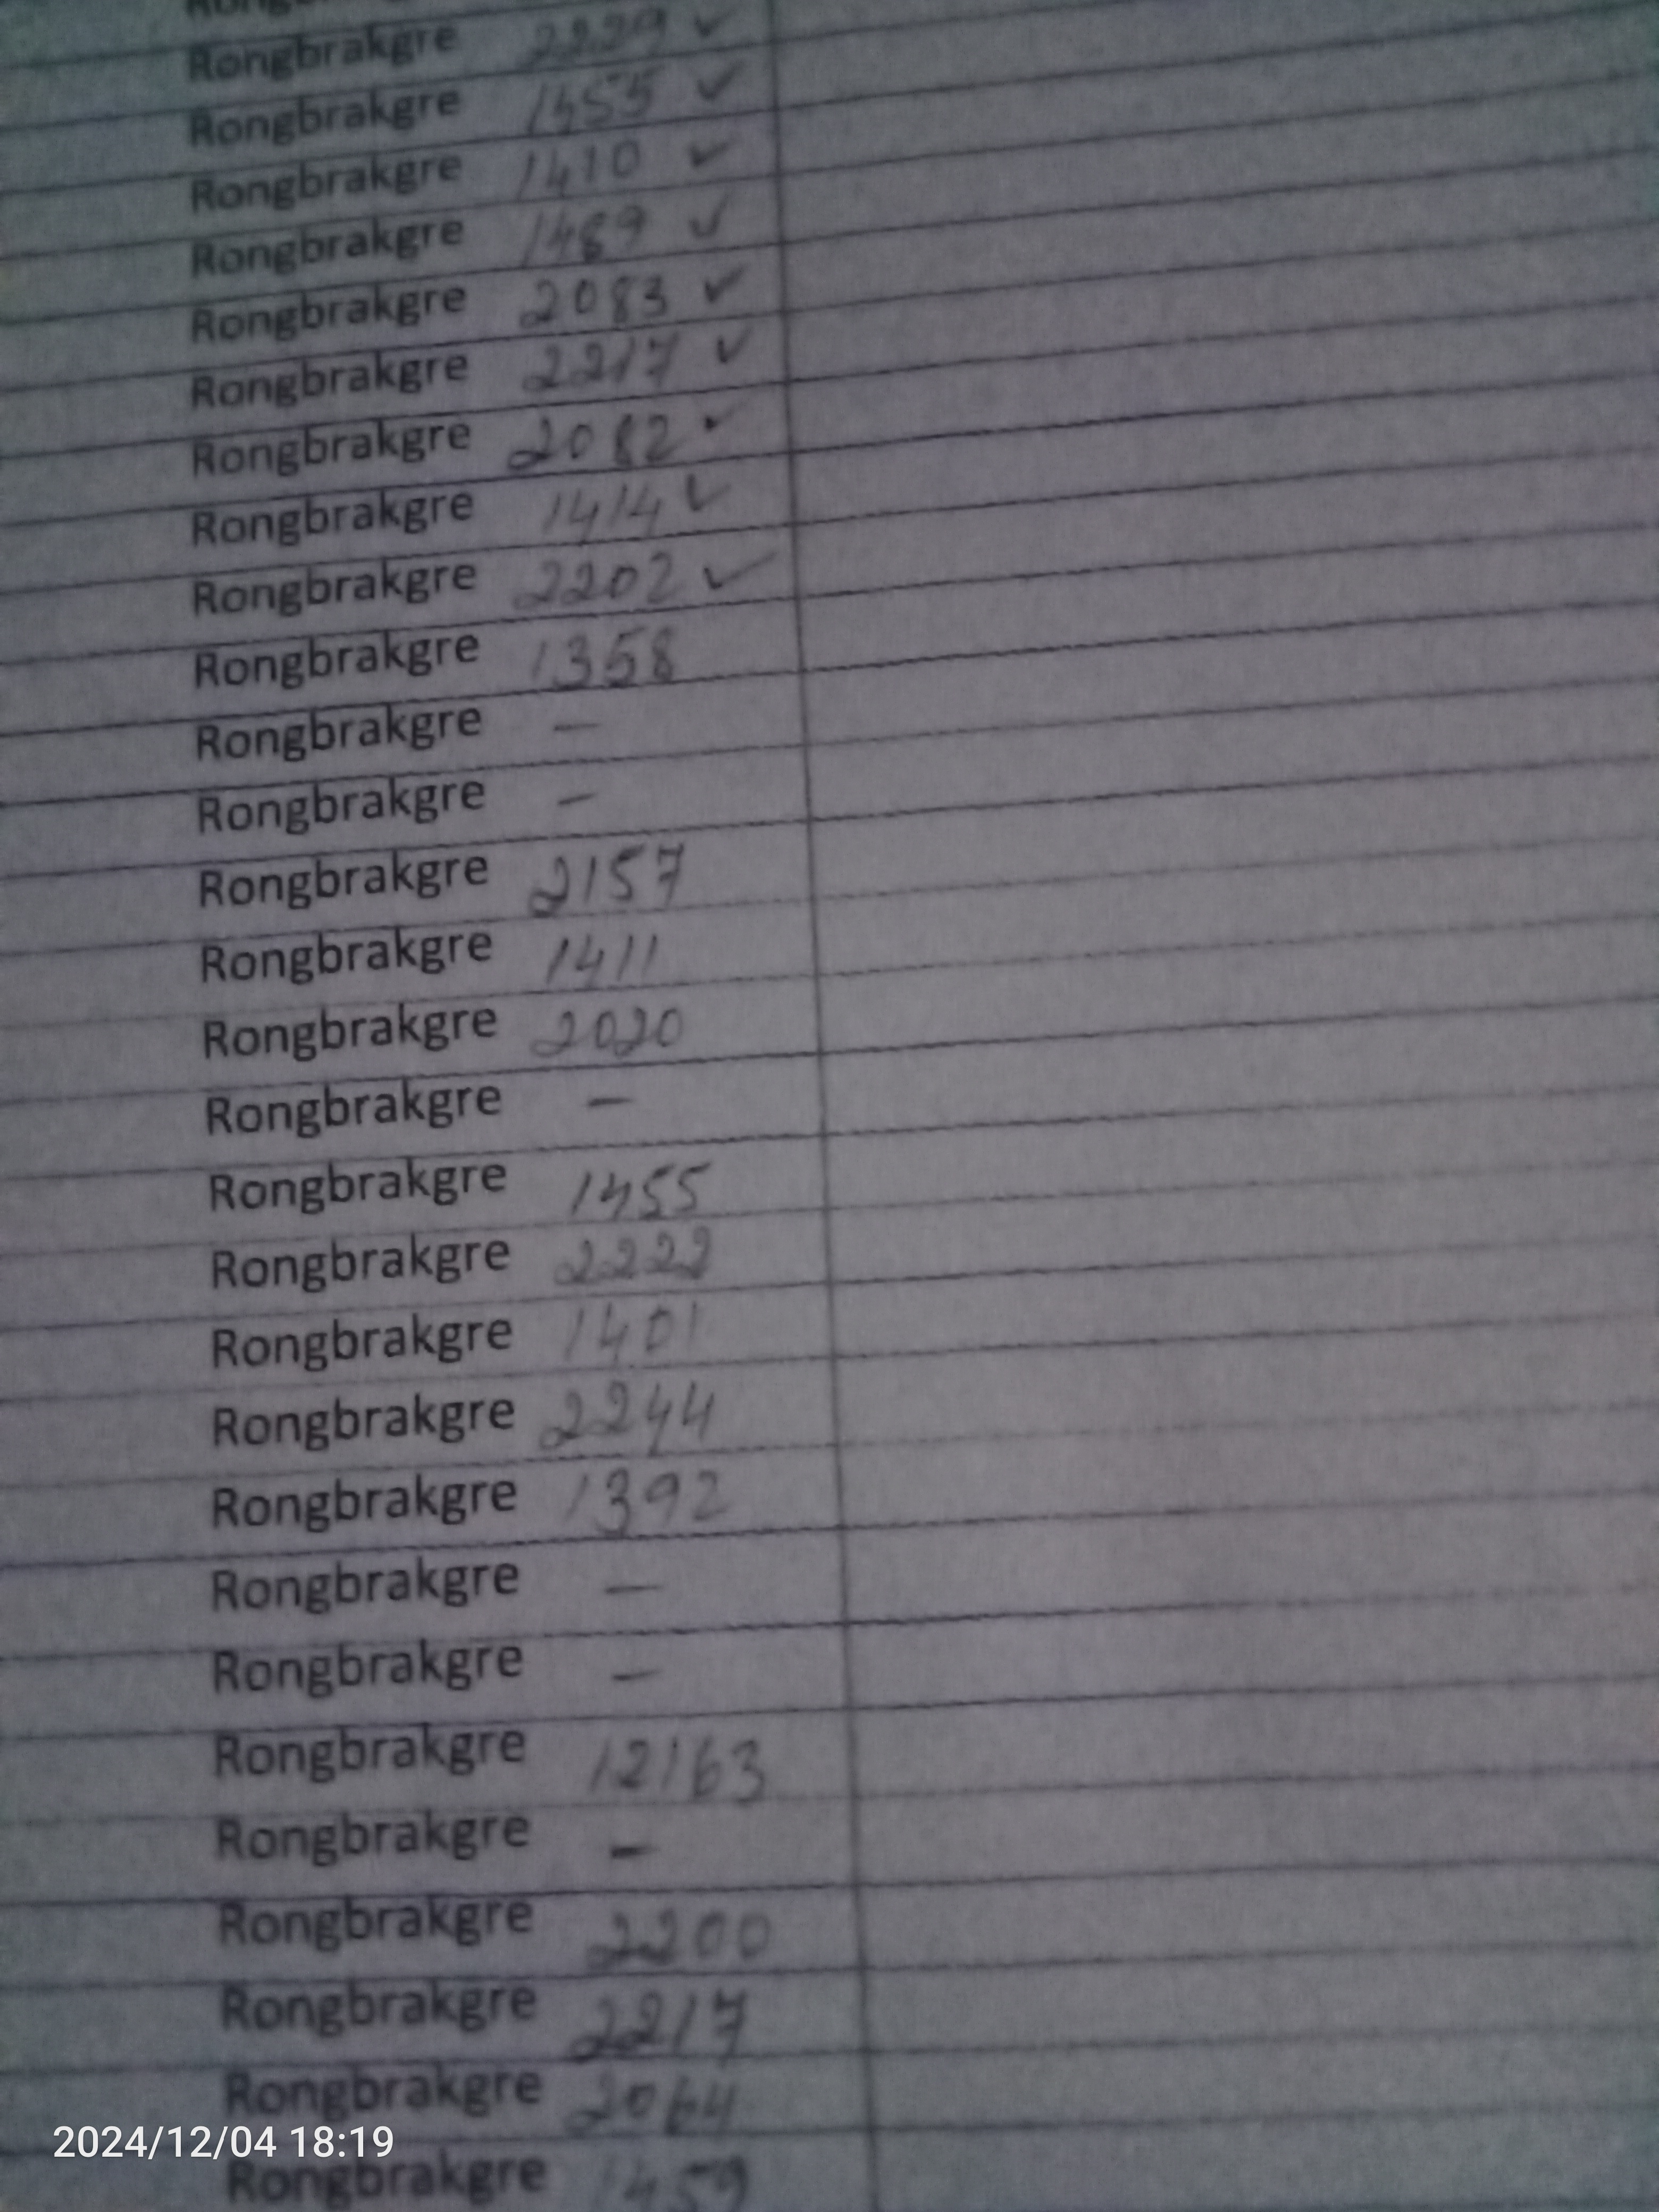 Rongbrakgre 2229 ✓
Rongbrakgre 1455 ✓
Rongbrakgre 1410 ✓
Rongbrakgre 1489 ✓
Rongbrakgre 2083 ✓
Rongbrakgre 2217 ✓
Rongbrakgre 2082 ✓
Rongbrakgre 1414 ✓
Rongbrakgre 2202 ✓
Rongbrakgre 1358
Rongbrakgre —
Rongbrakgre —
Rongbrakgre 2157
Rongbrakgre 1411
Rongbrakgre 2020
Rongbrakgre —
Rongbrakgre 1455
Rongbrakgre 2222
Rongbrakgre 1401
Rongbrakgre 2244
Rongbrakgre 1392
Rongbrakgre —
Rongbrakgre —
Rongbrakgre 12163
Rongbrakgre —
Rongbrakgre 2200
Rongbrakgre 2217
Rongbrakgre 2064
2024/12/04 18:19
Rongbrakgre 1459